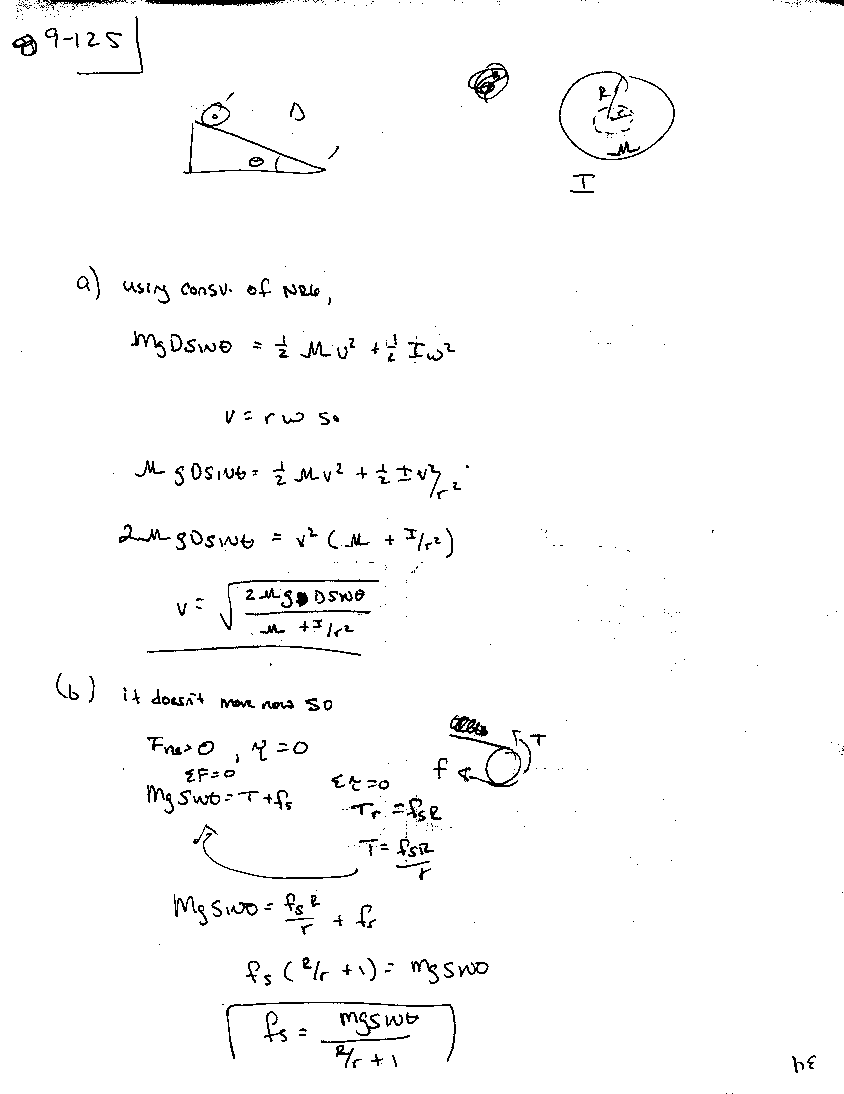 9-125
D
θ
R
r
M
I
a) using consv. of NRG,
MgDsinθ = 1/2 Mv² + 1/2 Iω²
v = rω so
MgDsinθ = 1/2 Mv² + 1/2 Iv²/r²
2MgDsinθ = v² (M + I/r²)
v = √(2MgDsinθ / (M + I/r²))
(b) it doesn't move now so
Fnet = 0, τ = 0
ΣF = 0
Στ = 0
T
f
Mgsinθ = T + fs
Tr = fsR
T = fsR/r
Mgsinθ = fsR/r + fs
fs (R/r + 1) = mgsinθ
fs = mgsinθ / (R/r + 1)
34